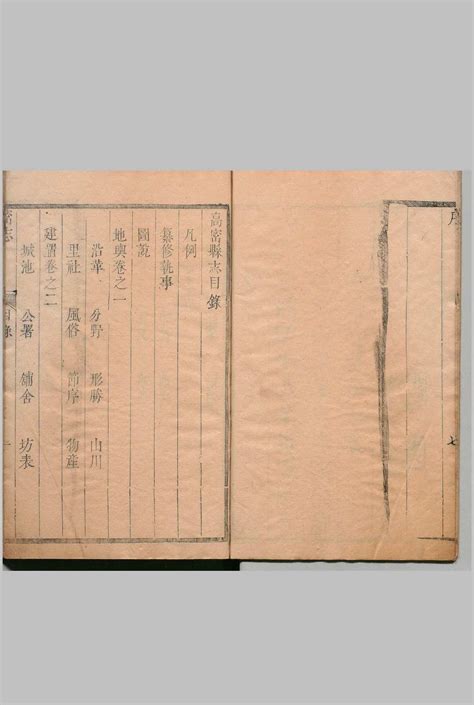 序
七
高密縣志目錄
凡例
纂修執事
圖說
地輿卷之一
沿革 分野 形勝 山川
里社 風俗 節序 物產
建置卷之二
城池 公署 鋪舍 坊表
密志
目錄
一